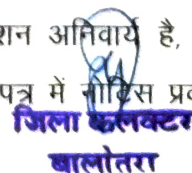 शन अनिवार्य है,
पत्र में नोटिस प्रव
जिला कलक्टर
बालोतरा